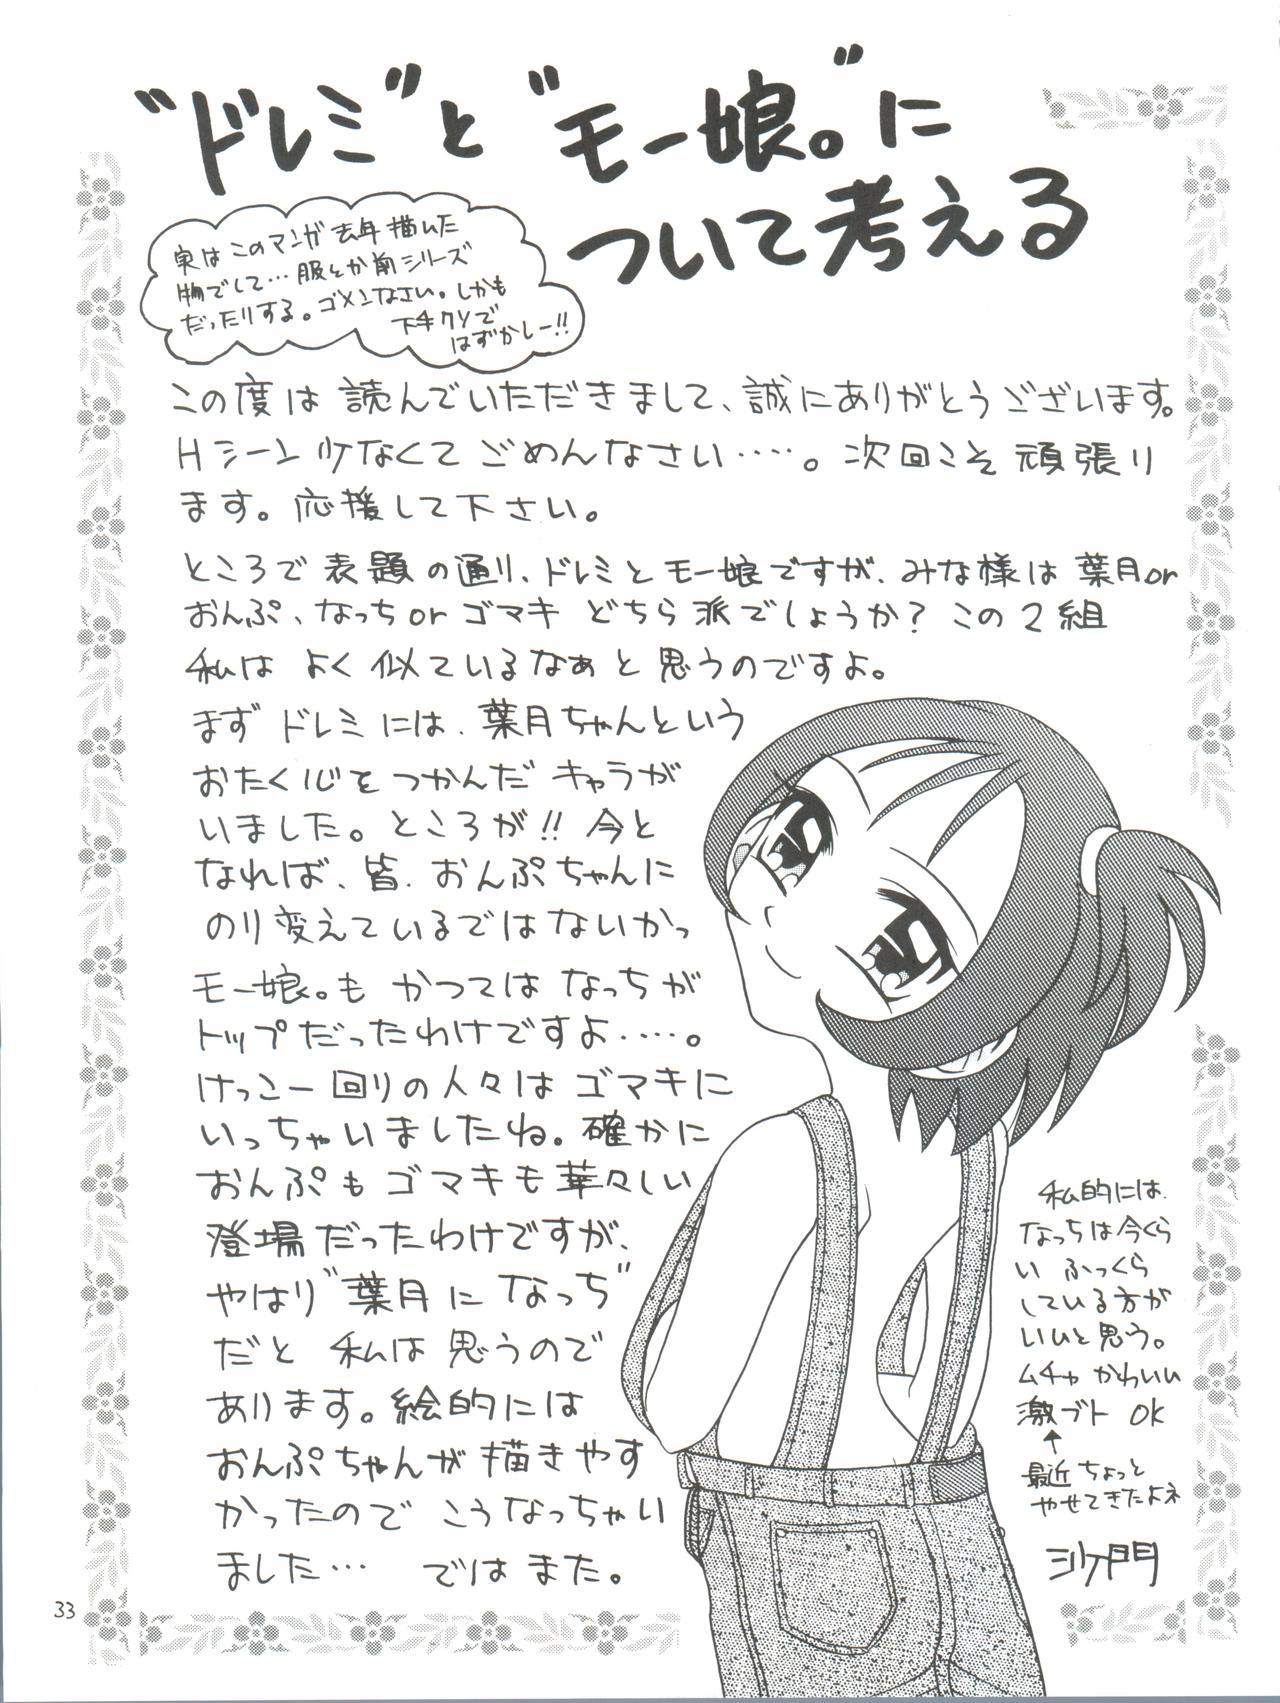 "ドレミ"と"モー娘。"に
ついて考える
実はこのマンガ去年描いた
物でして…服とか前シリーズ
だったりする。ゴメンなさい。しかも
下手クソで
はずかしー!!
この度は読んでいただきまして、誠にありがとうございます。
Hシーン少なくてごめんなさい……。次回こそ頑張り
ます。応援して下さい。
ところで表題の通り、ドレミとモー娘ですが、みな様は葉月or
おんぷ、なっちorゴマキどちら派でしょうか?この2組
私はよく似ているなぁと思うのですよ。
まずドレミには、葉月ちゃんという
おたく心をつかんだキャラが
いました。ところが!!今と
なれば、皆、おんぷちゃんに
のり変えているではないかっ
モー娘。もかつてはなっちが
トップだったわけですよ……。
けっこー回りの人々はゴマキに
いっちゃいましたね。確かに
おんぷもゴマキも華々しい
登場だったわけですが、
やはり"葉月になっち"
だと私は思うので
あります。絵的には
おんぷちゃんが描きやす
かったのでこうなっちゃい
ました… ではまた。
私的には、
なっちは今くら
いふっくら
している方が
いいと思う。
ムチャかわいい
激ブトOK
↑
最近ちょっと
やせてきたよネ
沙門
33